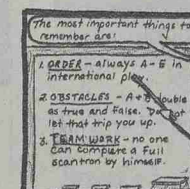 The most important things to
remember are:
1. ORDER - always A-E in
international play.
2. OBSTACLES - A + B double
as true and false. Do not
let that trip you up.
3. TEAM WORK - no one
can complete a full
scantron by himself.